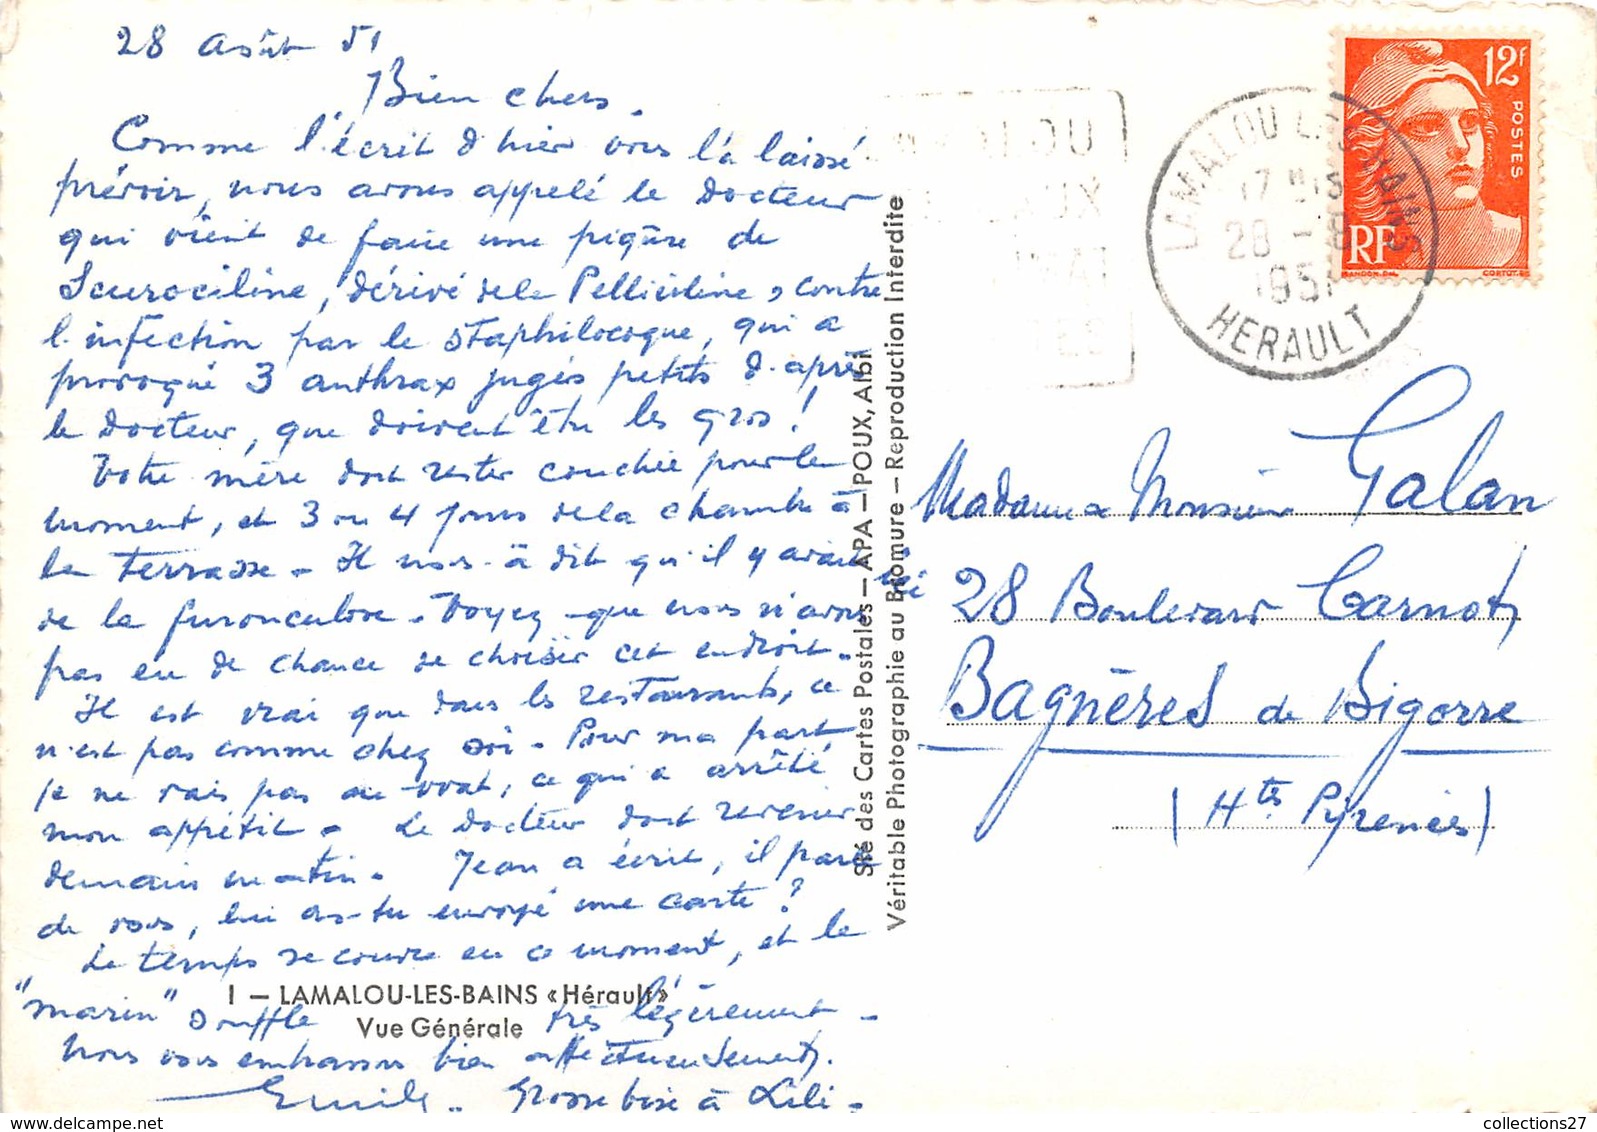 28 août 51
Bien chers.
Comme l'écrit d'hier vous l'a laissé
prévoir, nous avons appelé le docteur
qui vient de faire une piqûre de
dérivé de la Pelliciline, contre
l'infection par le staphilocoque, qui a
provoqué 3 anthrax jugés petits d'après
le docteur, que doivent être les gros!
Votre mère doit rester couchée pour le
moment, et 3 ou 4 jours de la chambre à
la terrasse - Il nous a dit qu'il y avait
de la furonculose - Voyez que nous n'avons
pas eu de chance de choisir cet endroit.
Il est vrai que dans les restaurants, ce
n'est pas comme chez soi - Pour ma part
je ne vais pas au vrat, ce qui a arrêté
mon appétit - Le docteur doit revenir
demain matin - Jean a écrit, il parle
de vous, lui as-tu envoyé une carte?
Le temps se couvre en ce moment, et le
"marin" souffle très légèrement -
Nous vous embrassons bien affectueusement.
Emile - Grosse bise à Lili -
1 - LAMALOU-LES-BAINS «Hérault»
Vue Générale
Sté des Cartes Postales - APA - POUX, Albi
Véritable Photographie au Bromure - Reproduction Interdite
LAMALOU LES BAINS
28 - 8
1951
HERAULT
12f
POSTES
RF
Madame & Monsieur Galan
28 Boulevard Carnot,
Bagnères de Bigorre
(Htes Pyrénées)
collections27